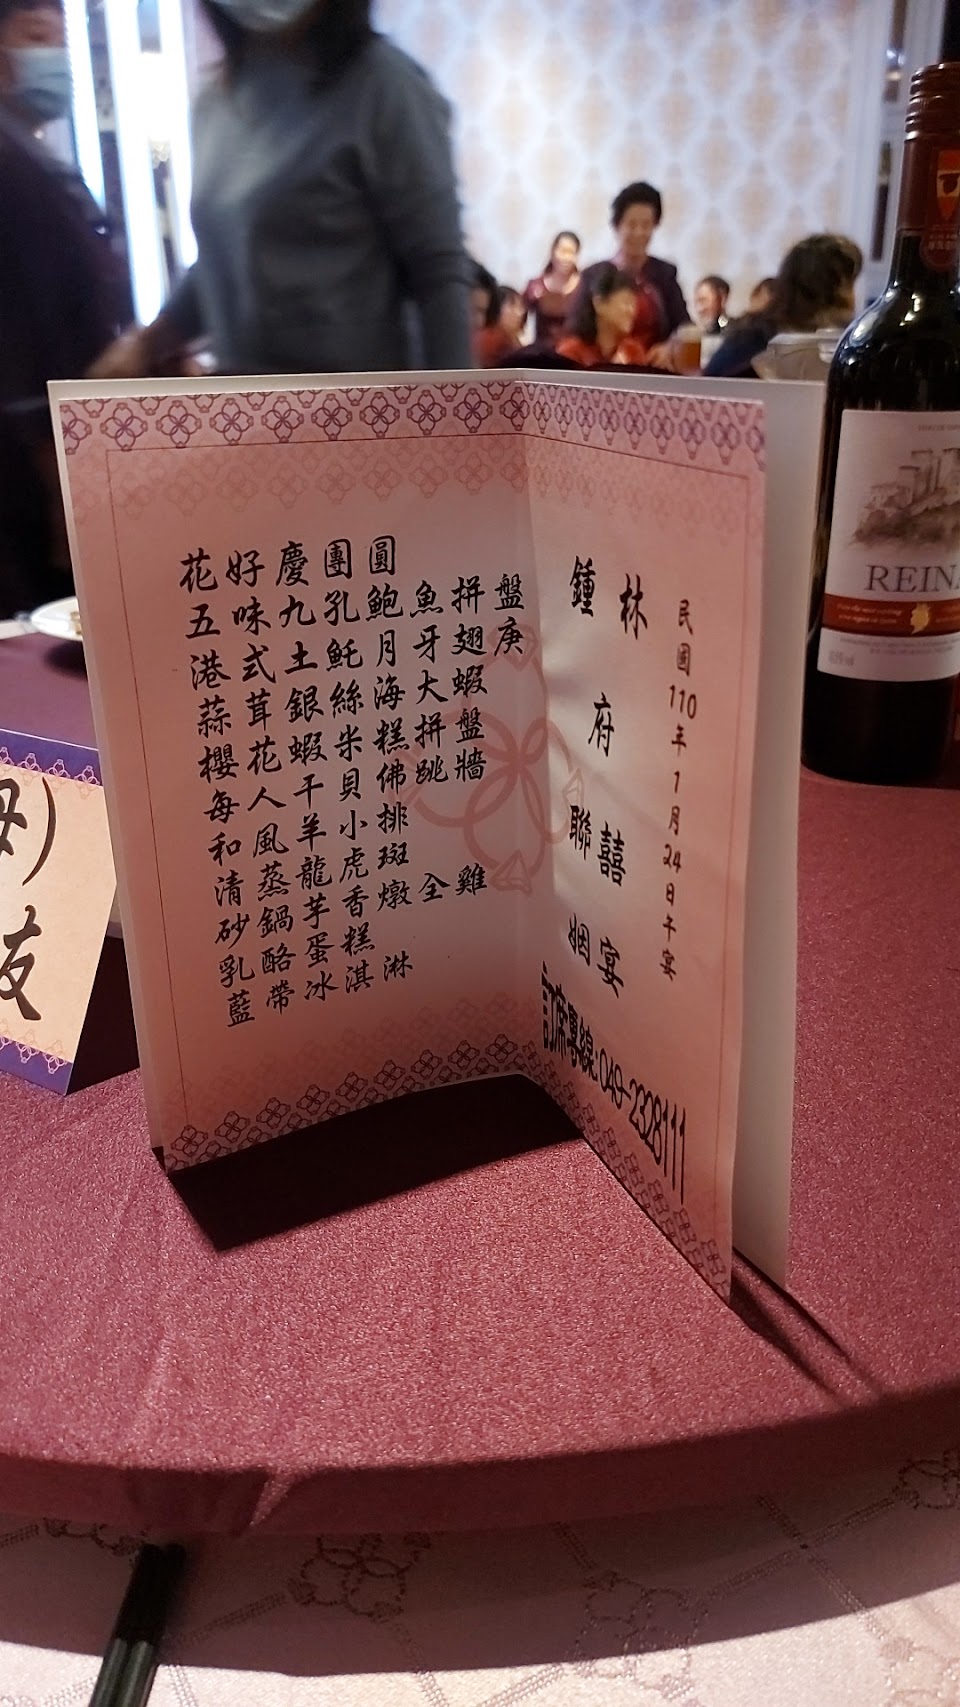 民國110年1月24日午宴
林
鍾
府
聯姻
囍宴
訂席專線:049-2328111
花好慶團圓
五味九孔鮑魚拼盤
港式土魠月牙翅庚
蒜茸銀絲海大蝦
櫻花蝦米糕拼盤
每人干貝佛跳牆
和風羊小排
清蒸龍虎斑
砂鍋芋香燉全雞
乳酪蛋糕
藍帶冰淇淋
友
REINA